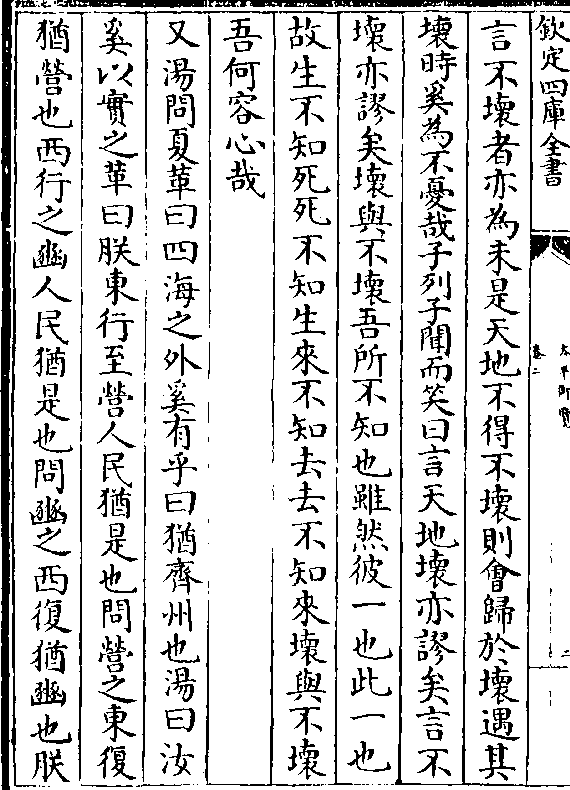 欽定四庫全書
太平御覽
卷二
二
言不壞者亦為未是天地不得不壞則會歸於壞遇其
壞時奚為不憂哉子列子聞而笑曰言天地壞亦謬矣言不
壞亦謬矣壞與不壞吾所不知也雖然彼一也此一也
故生不知死死不知生來不知去去不知來壞與不壞
吾何容心哉
又湯問夏革曰四海之外奚有乎曰猶齊州也湯曰汝
奚以實之革曰朕東行至營人民猶是也問營之東復
猶營也西行之豳人民猶是也問豳之西復猶豳也朕